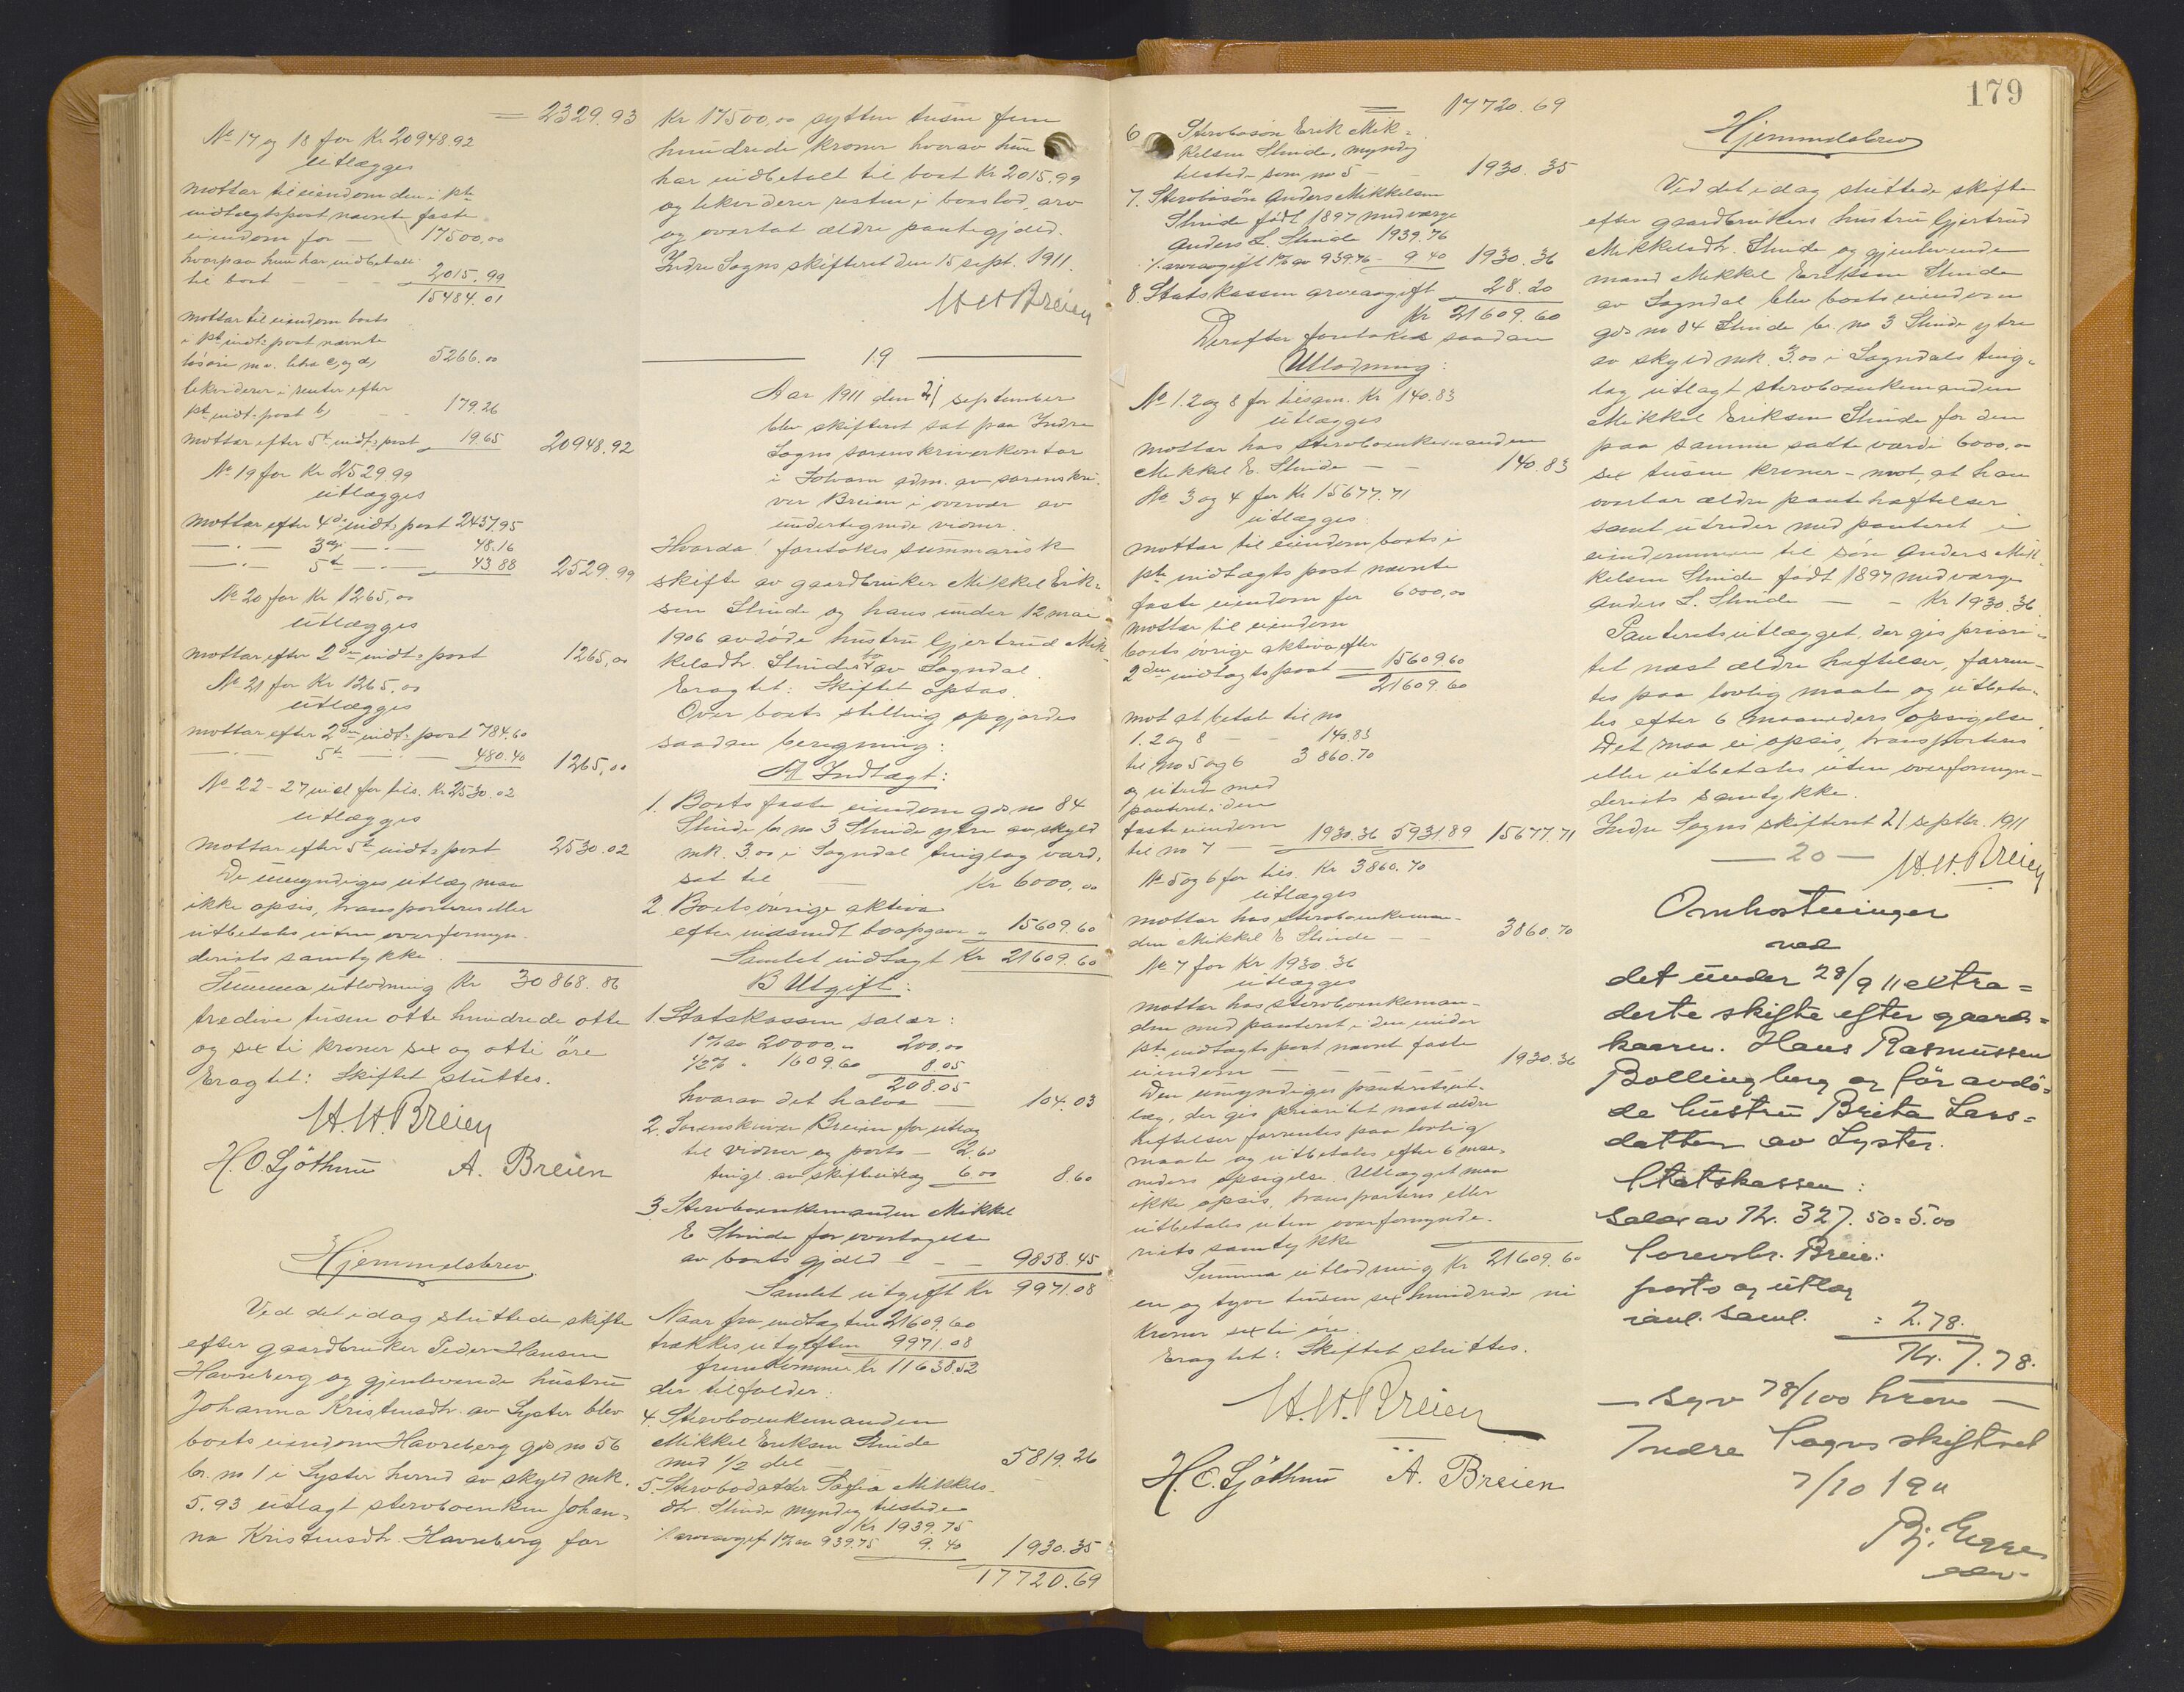 = 2329.93
No 17 og 18 for Kr 20948.92
utlægges
mottar til eiendom den i 1ste
indtægtspost nævnte faste
eiendom for — 17500,00
hvorpaa hun har indbetalt
til boet - - - 2015.99
15484.01
mottar til eiendom boets
i 1ste indt.post nævnte
løsøre m.v. litra c, og d, 5266.00
likviderer i renter efter
1ste indt.post b, - - 179.26
mottar efter 5te indt.post 19.65 20948.92
No 19 for Kr 2529.99
utlægges
mottar efter 4de indt.post 2437.95
—„— 3dje —„— 48.16
—„— 5te —„— 43.88 2529.99
No 20 for Kr 1265,00
utlægges
mottar efter 2den indt.post 1265,00
No 21 for Kr 1265,00
utlægges
mottar efter 2den indt.post 784.60
—„— 5te —„— 480.40 1265,00
No 22-27 incl for tils. Kr 2530.02
utlægges
mottar efter 5te indt.post 2530.02
De umyndiges utlæg maa
ikke opsis, transporteres eller
utbetales uten overformyn-
deriets samtykke.
Summa utlodning Kr 30868.86
tredive tusen otte hundrede otte
og sexti kroner sex og otti øre
Eragtet: Skiftet sluttes.
H.H. Breien
H.O. Sjøthun A. Breien
Hjemmelsbrev.
Ved det idag sluttede skifte
efter gaardbruker Peder Hansen
Havreberg og gjenlevende hustru
Johanna Kristensdtr. av Lyster blev
boets eiendom Havreberg gds no 56
br. no 1 i Lyster herred av skyld mk.
5.93 utlagt stervboenken Johan-
na Kristensdtr. Havreberg for
Kr 17500,00 sytten tusen fem
hundrede kroner hvorav hun
har indbetalt til boet Kr 2015.99
og likviderer resten i boslod, arv
og overtat ældre pantegjæld.
Indre Sogns skifteret den 15 sept. 1911.
H H Breien
19
Aar 1911 den 21 september
blev skifteret sat paa Indre
Sogns sorenskriverkontor
i Solvorn adm. av sorenskri-
ver Breien i overvær av
undertegnede vidner.
Hvorda! foretokes summarisk
skifte av gaardbruker Mikkel Erik-
sen Slinde og hans under 12 mai
1906 avdøde hustru Gjertrud Mik-
kelsdtr. Slindes bo av Sogndal.
Eragtet: Skiftet optas.
Over boets stilling opgjordes
saadan beregning:
A Indtægt:
1. Boets faste eiendom gds no 84
Slinde br. no 3 Slinde ytre av skyld
mk. 3.00 i Sogndal tinglag værd-
sat til — Kr 6000,00
2. Boets øvrige aktiva
efter indsendt boopgave „ 15609.60
Samlet indtægt Kr 21609.60
B Utgift:
1. Statskassen salær:
1% av 20000,00 200,00
½% „ 1609.60 8.05
208.05
hvorav det halve — 104.03
2. Sorenskriver Breien for utlæg
til vidner og porto — 2.60
tingl. av skifteutlæg 6.00 8.60
3. Stervboenkemanden Mikkel
E Slinde for overtagelse
av boets gjæld - — - 9858.45
Samlet utgift Kr 9971.08
Naar fra indtægten 21609.60
trækkes utgiften 9971.08
fremkommer Kr 11638.52
der tilfalder:
4. Stervboenkemanden
Mikkel Eriksen Slinde
med ½ del — 5819.26
5. Stervbodatter Sofia Mikkels-
dtr. Slinde myndig tilstede
Kr 1939.75
÷ arveavgift 1% av 939.75 9.40 1930.35
17720.69
179
= 17720.69
6 Stervbosøn Erik Mik-
kelsen Slinde, myndig
tilstede som no 5 - - 1930.35
7. Stervbosøn Anders Mikkelsen
Slinde født 1897 med værge
Anders L. Slinde 1939.76
÷ arveavgift 1% av 939.76 - 9.40 1930.36
8. Statskassen arveavgift 28.20
Kr 21609.60
Derefter foretokes saadan
Utlodning:
No 1.2 og 8 for tilsam. Kr 140.83
utlægges
mottar hos stervboenkemanden
Mikkel E. Slinde — - 140.83
No 3 og 4 for Kr 15677.71
utlægges
mottar til eiendom boets i
1ste indtægtspost nævnte
faste eiendom for 6000,00
mottar til eiendom
boets øvrige aktiva efter
2den indtægtspost 15609.60
21609.60
mot at betale til no
1. 2 og 8 - - 140.83
til no 5 og 6 3860.70
og utrede med
panteret i den
faste eiendom
til no 7 - 1930.36 5931.89 15677.71
No 5 og 6 for tils. Kr 3860.70
utlægges
mottar hos stervboenkeman-
den Mikkel E Slinde - - 3860.70
No 7 for Kr 1930.36
utlægges
mottar hos stervboenkeman-
den med panteret i den under
1ste indtægtspost nævnt faste
eiendom - - - - 1930.36
Den umyndiges panteretsut-
læg, der gis prioritet næst ældre
heftelser forrentes paa lovlig
maate og utbetales efter 6 maa-
neders opsigelse. Utlægget maa
ikke opsis, transporteres eller
utbetales uten overformynde-
riets samtykke
Summa utlodning Kr 21609.60
en og tyve tusen sex hundrede ni
kroner sexti øre.
Eragtet: Skiftet sluttes.
H.H. Breien
H.O. Sjøthun A. Breien
Hjemmelsbrev
Ved det idag sluttede skifte
efter gaardbrukers hustru Gjertrud
Mikkelsdtr. Slinde og gjenlevende
mand Mikkel Eriksen Slinde
av Sogndal blev boets eiendom
gds no 84 Slinde br. no 3 Slinde ytre
av skyld mk. 3.00 i Sogndals ting-
lag utlagt stervboenkemanden
Mikkel Eriksen Slinde for den
paa samme satte værdi 6000,00
sex tusen kroner - mot, at han
overtar ældre panteheftelser
samt utreder med panteret i
eiendommen til søn Anders Mik-
kelsen Slinde født 1897 med værge
Anders L. Slinde — - Kr 1930.36
Panteretsutlægget, der gis priori-
tet næst ældre heftelser, forren-
tes paa lovlig maate og utbeta-
les efter 6 maaneders opsigelse
Det maa ei opsis, transporteres
eller utbetales uten overformyn-
deriets samtykke.
Indre Sogns skifteret 21 septbr. 1911
— 20 — H.H. Breien
Omkostninger
ved
det under 28/9 11 extra=
derte skifte efter gaard=
kaarm. Hans Rasmussen
Bollingberg og før avdø=
de hustru Brita Lars=
datter av Lyster.
Statskassen:
Salær av Kr. 327.50 = 5.00
Sorenskr. Breien:
porto og utlæg
saml. = 2.78.
Kr. 7.78.
— syv 78/100 krone —
Indre Sogns skifteret
7/10 1911
Bj. Egge